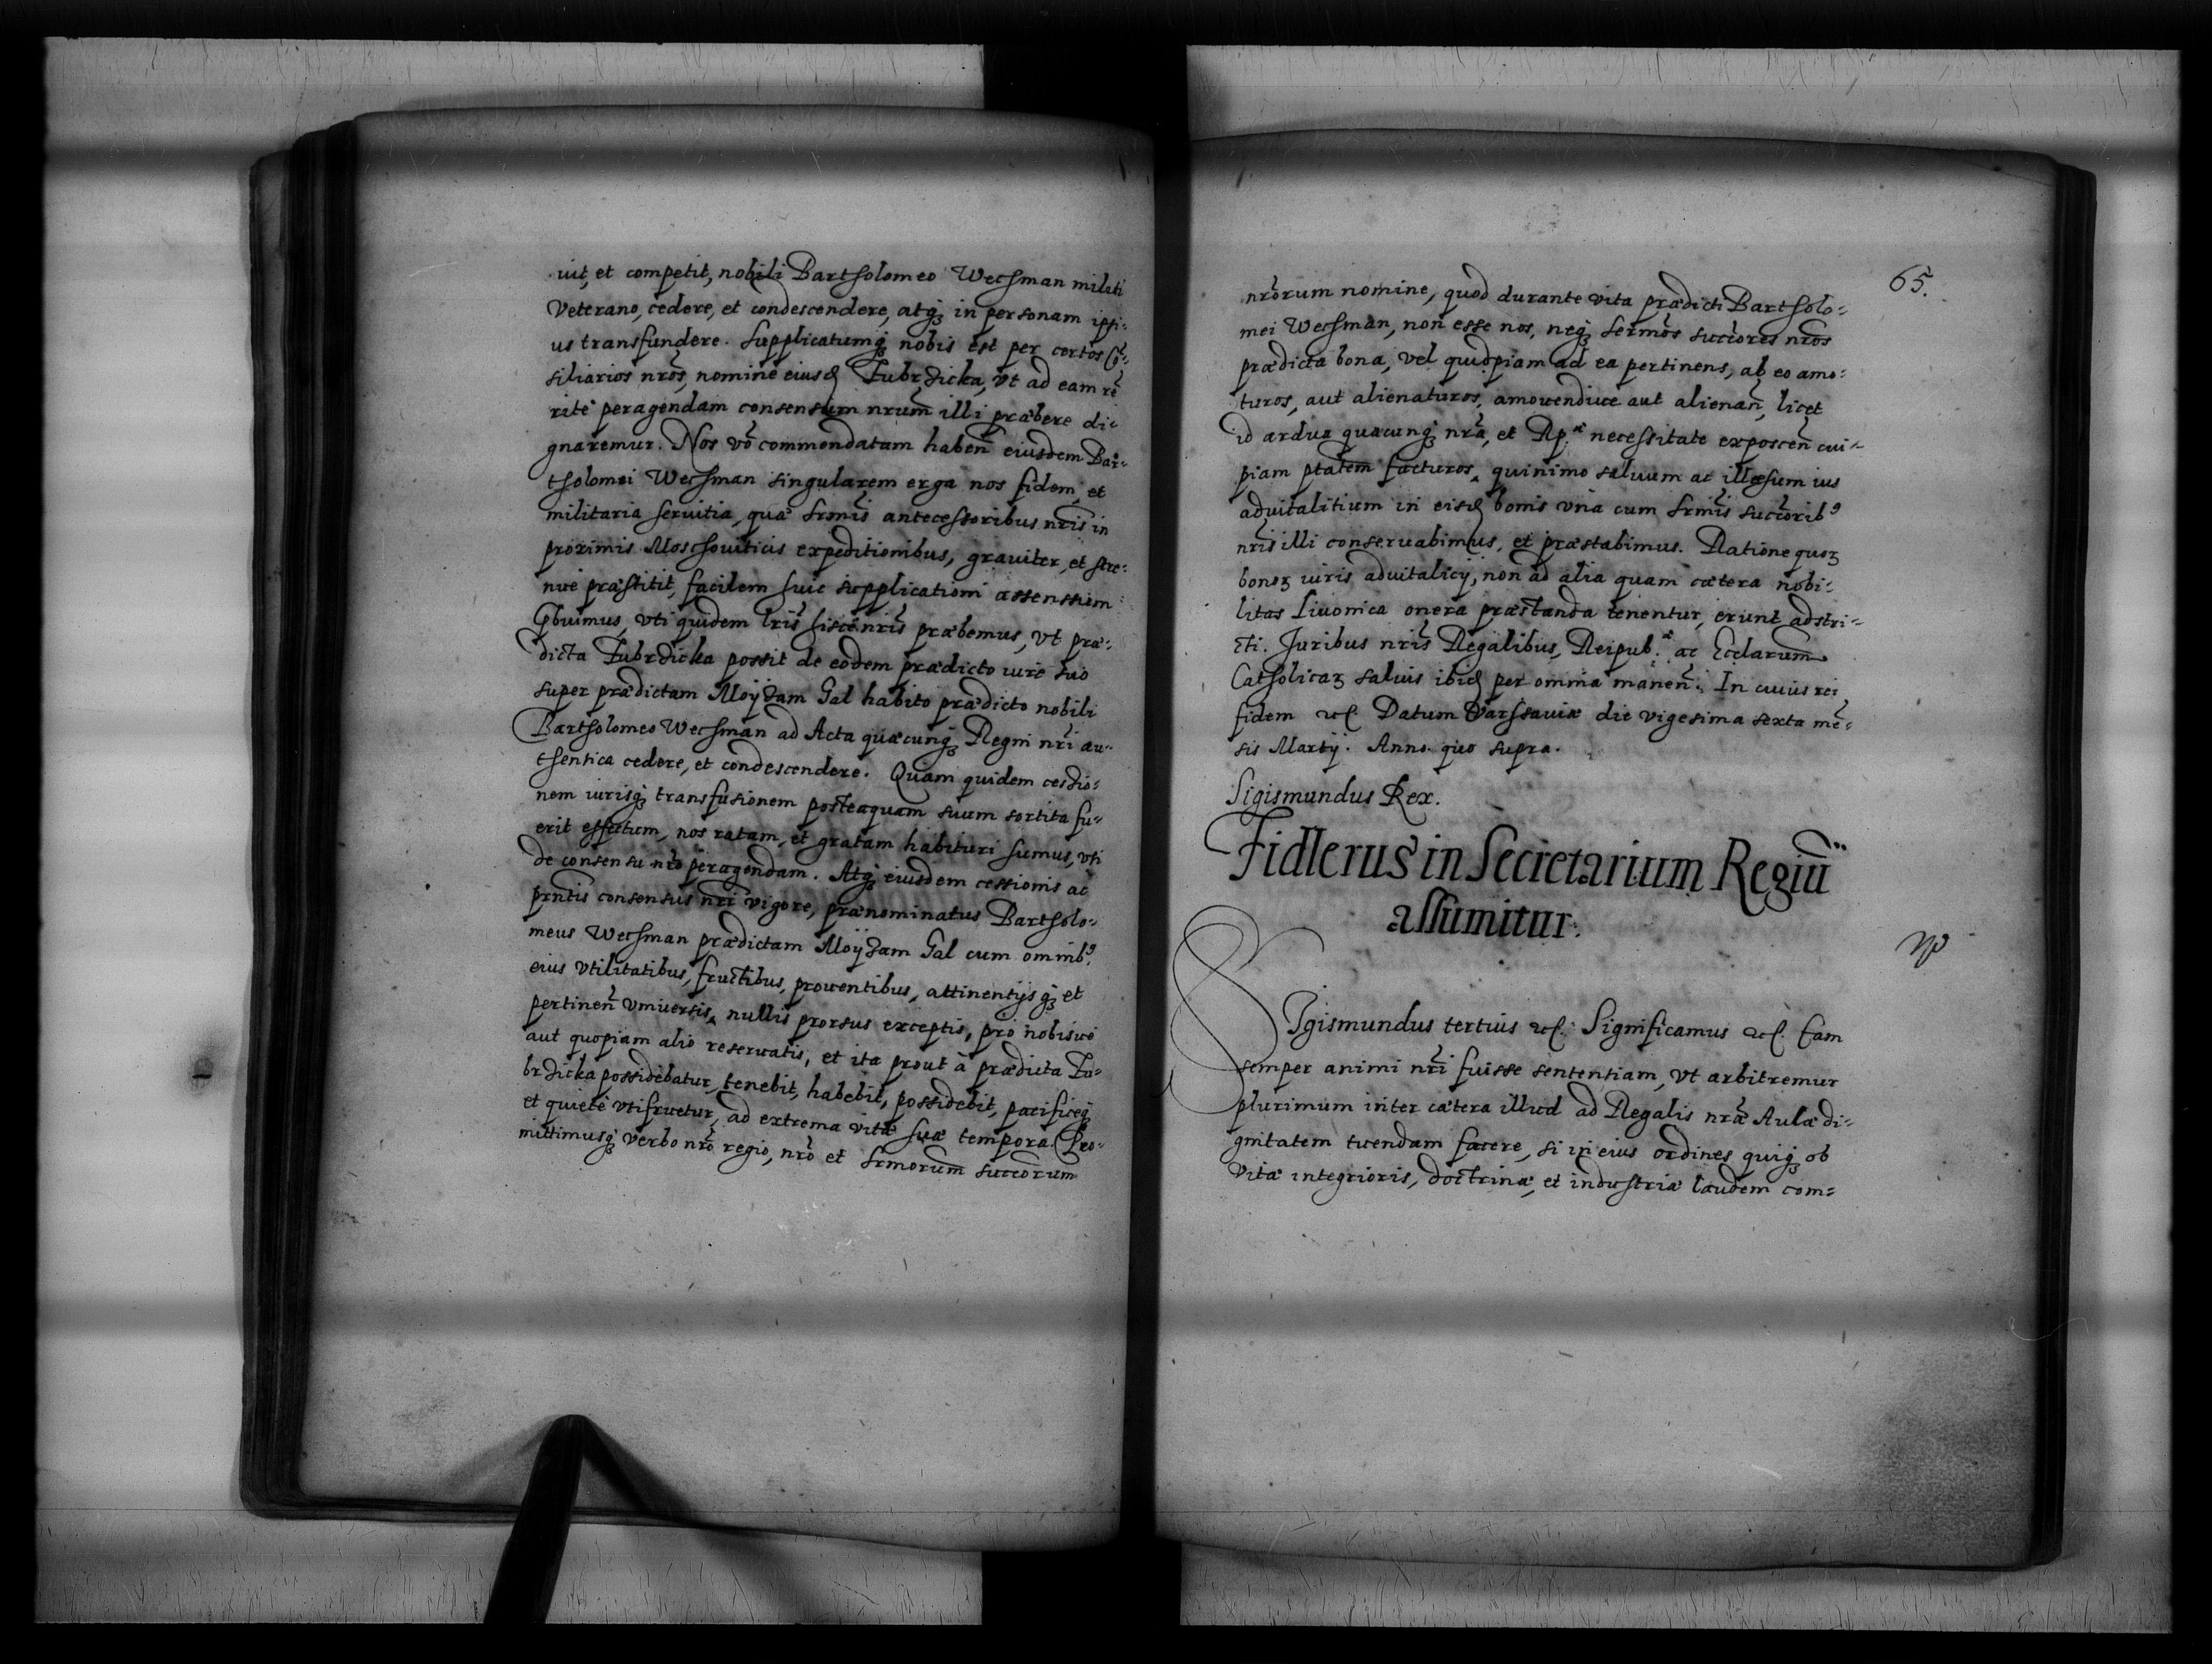 uit, et competit, nobili Bartholomeo Wechman militi
Veterano, cedere, et condescendere, atq₃ in personam ipsi-
us transfundere. Supplicatumq₃ nobis est per certos Cō-
siliarios nr̃os, nomine eiusd Tubrzicka, vt ad eam rē
rite peragendam consensum nr̃um illi præbere di-
gnaremur. Nos vō commendatam haben̄ eiusdem Bar-
tholomei Wechman singularem erga nos fidem, et
militaria seruitia, quæ Srmis̃ antecessoribus nr̃is in
proximis Moschouiticis expeditionibus, grauiter, et stre-
nue præstitit, facilem huic supplicationi assensum
phuimus, vti quidem lris̃ hisce nr̃is præbemus, vt præ-
dicta Tubrzicka possit de eodem prædicto iure suo
super prædictam Moyzam Gal habito prædicto nobili
Bartholomeo Wechman ad Acta quæcunq₃ Regni nr̃i au-
thentica cedere, et condescendere. Quam quidem cessio-
nem iurisq₃ transfusionem posteaquam suum sortita fu-
erit effectum, nos ratam, et gratam habituri sumus, vti
de consensu nr̃o peragendam. Atq₃ eiusdem cessionis ac
prñtis consensus nr̃i vigore, prænominatus Bartholo-
meus Wechman prædictam Moyzam Gal cum omnib⁹
eius vtilitatibus, fructibus, prouentibus, attinentijsq₃ et
pertinen̄ vniuersis, nullis prorsus exceptis, pro nobisue
aut quopiam alio reseruatis, et ita prout à prædicta Tu-
brzicka possidebatur, tenebit, habebit, possidebit, pacificeq₃
et quiete vtifruetur, ad extrema vitæ suæ tempora. Pro-
mittimusq₃ verbo nr̃o regio, nr̃o et Srmorum̃ succorum̃
65.
nr̃orum nomine, quod durante vita prædicti Bartholo-
mei Wechman, non esse nos, neq₃ Sermos̃ succores̃ nr̃os
prædicta bona, vel quidpiam ad ea pertinens, ab eo amo-
turos, aut alienaturos, amouendiue aut alienan̄, licet
id ardua quacunq₃ nr̃a, et Rp.æ necessitate exposcen̄ cui-
piam ptatem̃ facturos, quinimo saluum ac illæsum ius
aduitalitium in eisd bonis vna cum Srmis̃ succorib⁹̃
nr̃is illi conseruabimus, et præstabimus. Ratione quoꝝ
bonoꝝ iuris aduitalicij, non ad alia quam cætera nobi-
litas Liuonica onera præstanda tenentur, erunt adstri-
cti. Juribus nr̃is Regalibus, Reipub.æ ac Ecclarum̃
Catholicaꝝ saluis ibid per omnia manen̄. In cuius rei
fidem etc. Datum Varsauiæ die vigesima sexta mē-
sis Martij. Anno quo supra.
Sigismundus Rex.
Fidlerus in Secretarium Regiū
assumitur.
SIgismundus tertius etc. Significamus etc. Eam
semper animi nr̃i fuisse sententiam, vt arbitremur
plurimum inter cætera illud ad Regalis nr̃æ Aulæ di-
gnitatem tuendam facere, si in eius ordines quiq₃ ob
vitæ integrioris, doctrinæ, et industriæ laudem com-